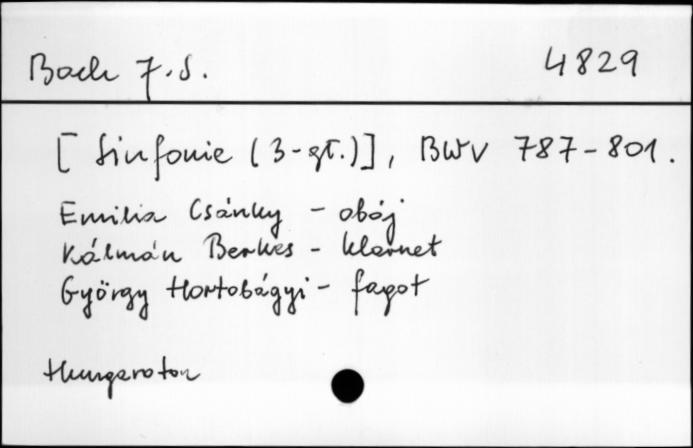 Bach J.S. 4829
[Sinfonie (3-gł.)], BWV 787-801.
Emilia Csánky - obój
Kálmán Berkes - klarnet
György Hortobágyi - fagot
Hungaroton